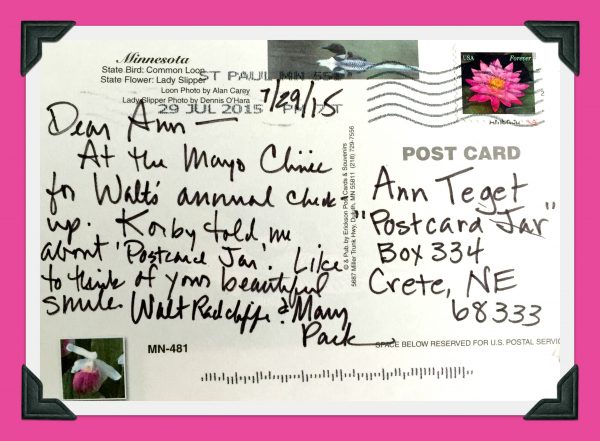 Minnesota
State Bird: Common Loon
State Flower: Lady Slipper
Loon Photo by Alan Carey
Lady Slipper Photo by Dennis O'Hara
ST PAUL MN 551
29 JUL 2015 PM
USA Forever
7/29/15
Dear Ann —
At the Mayo Clinic
for Walt's annual check
up. Korby told me
about 'Postcard Jar'. Like
to think of your beautiful
smile. Walt Radcliffe & Mary
Pack
© & Pub by Erickson Post Cards & Souvenirs
5687 Miller Trunk Hwy, Duluth, MN 55811 (218) 729-7556
POST CARD
Ann Teget
"Postcard Jar"
Box 334
Crete, NE
68333
MN-481
SPACE BELOW RESERVED FOR U.S. POSTAL SERVIC